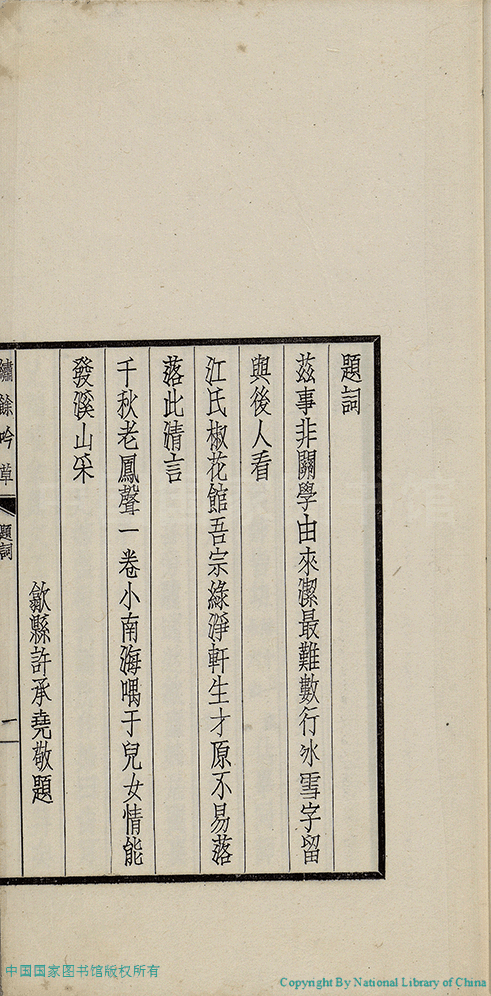 題詞
茲事非關學由來潔最難數行冰雪字留
與後人看
江氏椒花館吾宗綠淨軒生才原不易落
落此清言
千秋老鳳聲一卷小南海喁于兒女情能
發溪山采
歙縣許承堯敬題
繡餘吟草
題詞
一
中国国家图书馆版权所有
Copyright By National Library of China